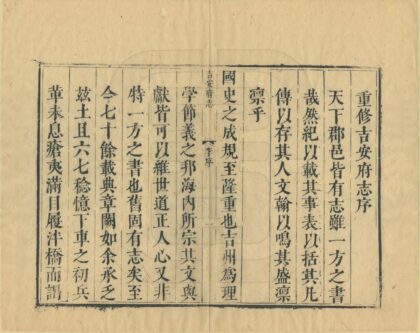 重修吉安府志序
天下郡邑皆有志雖一方之書
哉然紀以載其事表以括其凡
傳以存其人文翰以鳴其盛凛
凛乎
國史之成規至隆重也吉州為理
學節義之邦海內所宗其文與
獻皆可以維世道正人心又非
特一方之書也舊固有志矣至
今七十餘載典章闕如余承乏
玆土且六七稔憶下車之初兵
革未息瘡夷滿目履泮橋而謁
吉安府志
李序